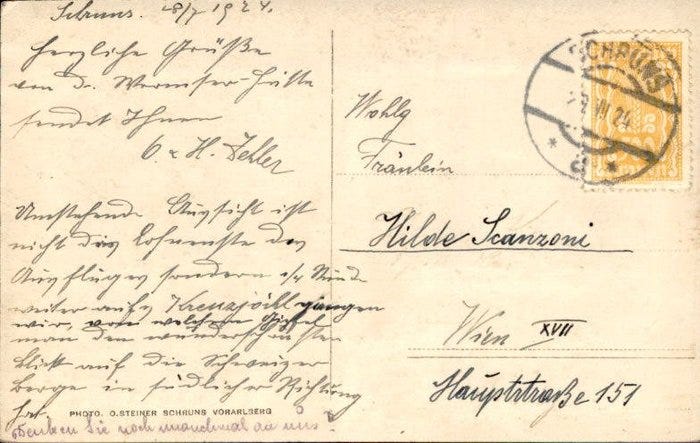 Schruns. 28/7 1924.
Herzliche Grüße
von d. Wormser-Hütte
sendet Ihnen
O. u. H. Zehler
Umstehende Aussicht ist
nicht das Lohnenste des
Ausfluges sondern 1/4 Stunde
weiter aufs Kreuzjöchl gingen
wir, von welchem Gipfel
man den wunderschönsten
Blick auf die Schweizer
Berge in südlicher Richtung
hat.
PHOTO. O. STEINER SCHRUNS VORARLBERG
Denken Sie noch manchmal an uns?
SCHRUNS
VII 24
* a *
Wohlg
Fräulein
Hilde Scanzoni
Wien XVII
Hauptstraße 151